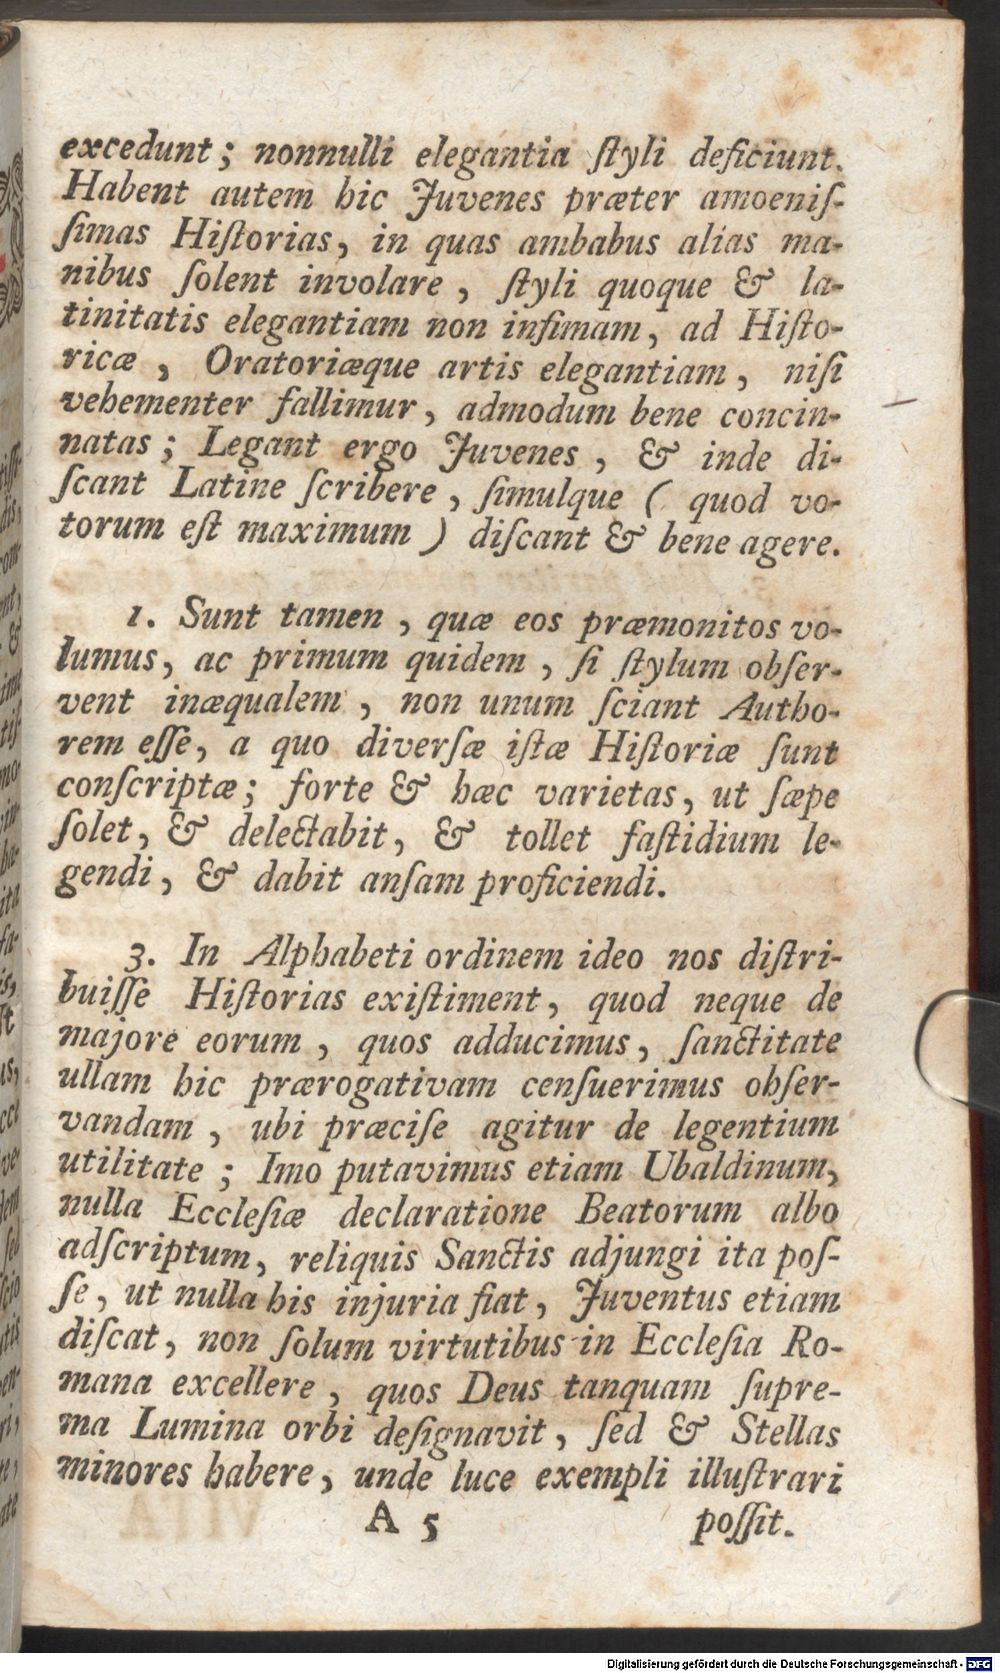 excedunt; nonnulli elegantia ſtyli deficiunt.
Habent autem hic Juvenes præter amoeniſ-
ſimas Hiſtorias, in quas ambabus alias ma-
nibus ſolent involare, ſtyli quoque & la-
tinitatis elegantiam non infimam, ad Hiſto-
ricæ, Oratoriæque artis elegantiam, niſi
vehementer fallimur, admodum bene concin-
natas; Legant ergo Juvenes, & inde di-
ſcant Latine ſcribere, ſimulque (quod vo-
torum eſt maximum) diſcant & bene agere.
1. Sunt tamen, quæ eos præmonitos vo-
lumus, ac primum quidem, ſi ſtylum obſer-
vent inæqualem, non unum ſciant Autho-
rem eſſe, a quo diverſæ iſtæ Hiſtoriæ ſunt
conſcriptæ; forte & hæc varietas, ut ſæpe
ſolet, & delectabit, & tollet faſtidium le-
gendi, & dabit anſam proficiendi.
3. In Alphabeti ordinem ideo nos diſtri-
buiſſe Hiſtorias exiſtiment, quod neque de
majore eorum, quos adducimus, ſanctitate
ullam hic prærogativam cenſuerimus obſer-
vandam, ubi præciſe agitur de legentium
utilitate; Imo putavimus etiam Ubaldinum,
nulla Eccleſiæ declaratione Beatorum albo
adſcriptum, reliquis Sanctis adjungi ita poſ-
ſe, ut nulla his injuria fiat, Juventus etiam
diſcat, non ſolum virtutibus in Eccleſia Ro-
mana excellere, quos Deus tanquam ſupre-
ma Lumina orbi deſignavit, ſed & Stellas
minores habere, unde luce exempli illuſtrari
A 5 poſſit.
Digitalisierung gefördert durch die Deutsche Forschungsgemeinschaft - DFG